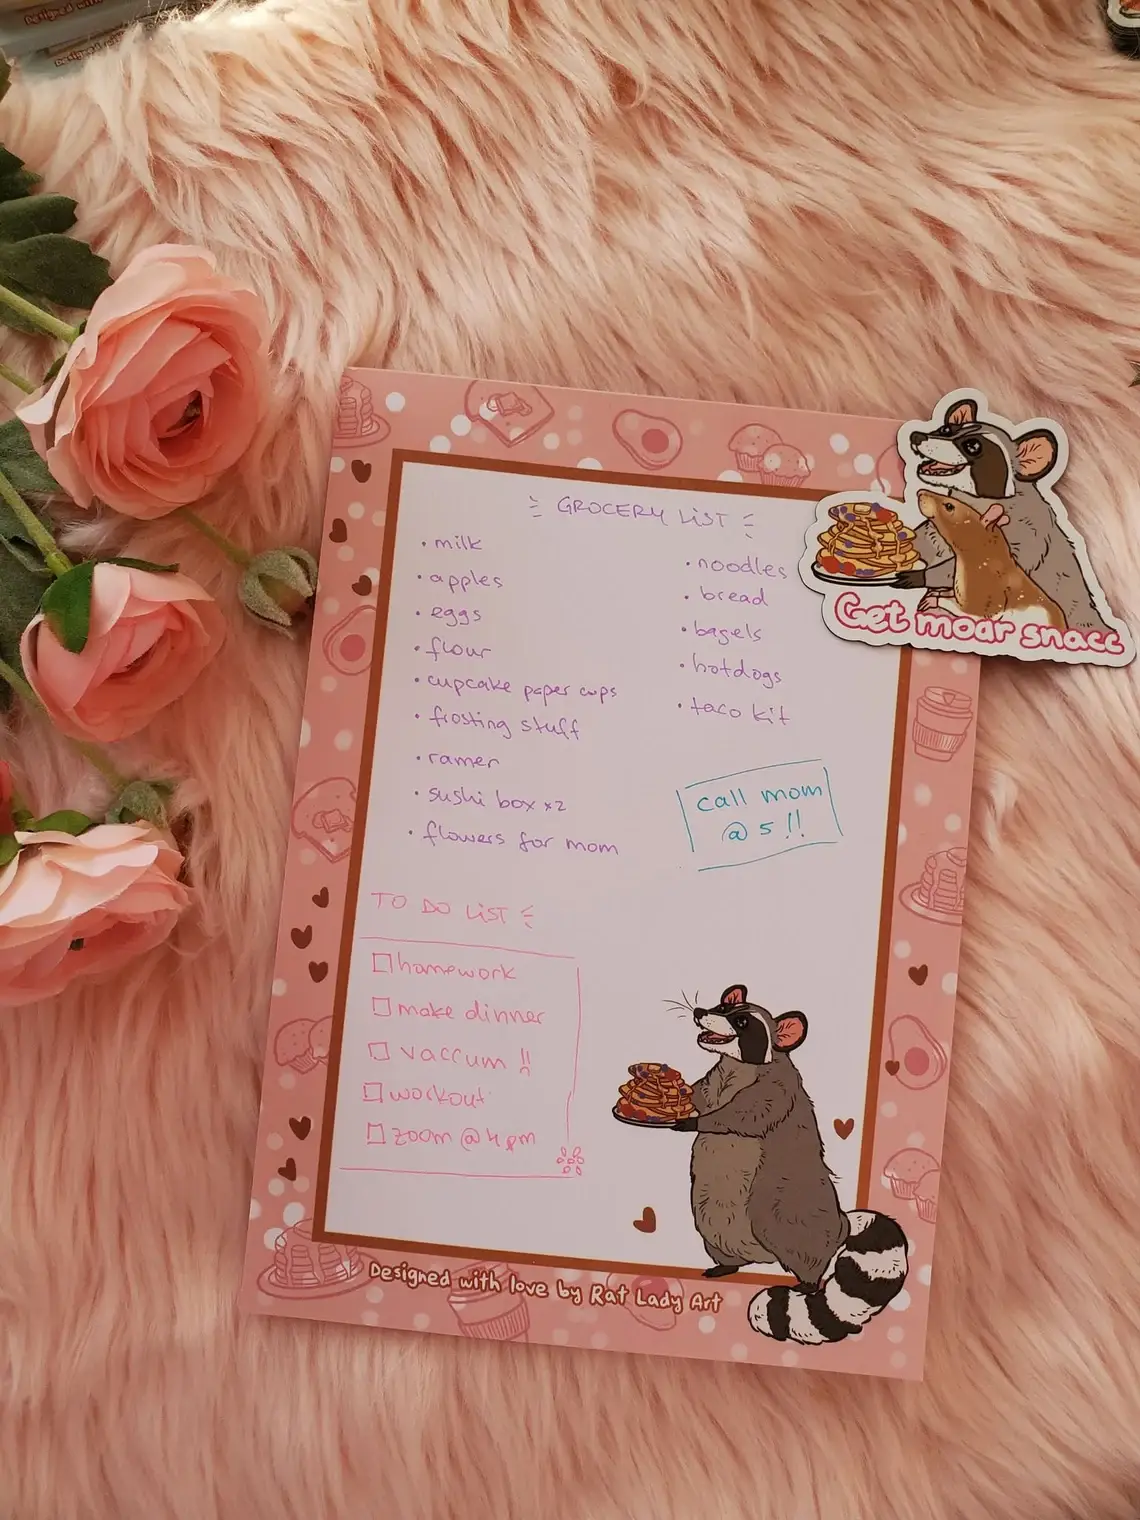 Designed with
Designed
GROCERY LIST
• milk
• apples
• eggs
• flour
• cupcake paper cups
• frosting stuff
• ramen
• sushi box x2
• flowers for mom
• noodles
• bread
• bagels
• hotdogs
• taco kit
Get moar snacc
call mom
@ 5 !!
TO DO LIST
homework
make dinner
vaccum !!
workout
zoom @ 4 pm
Designed with love by Rat Lady Art